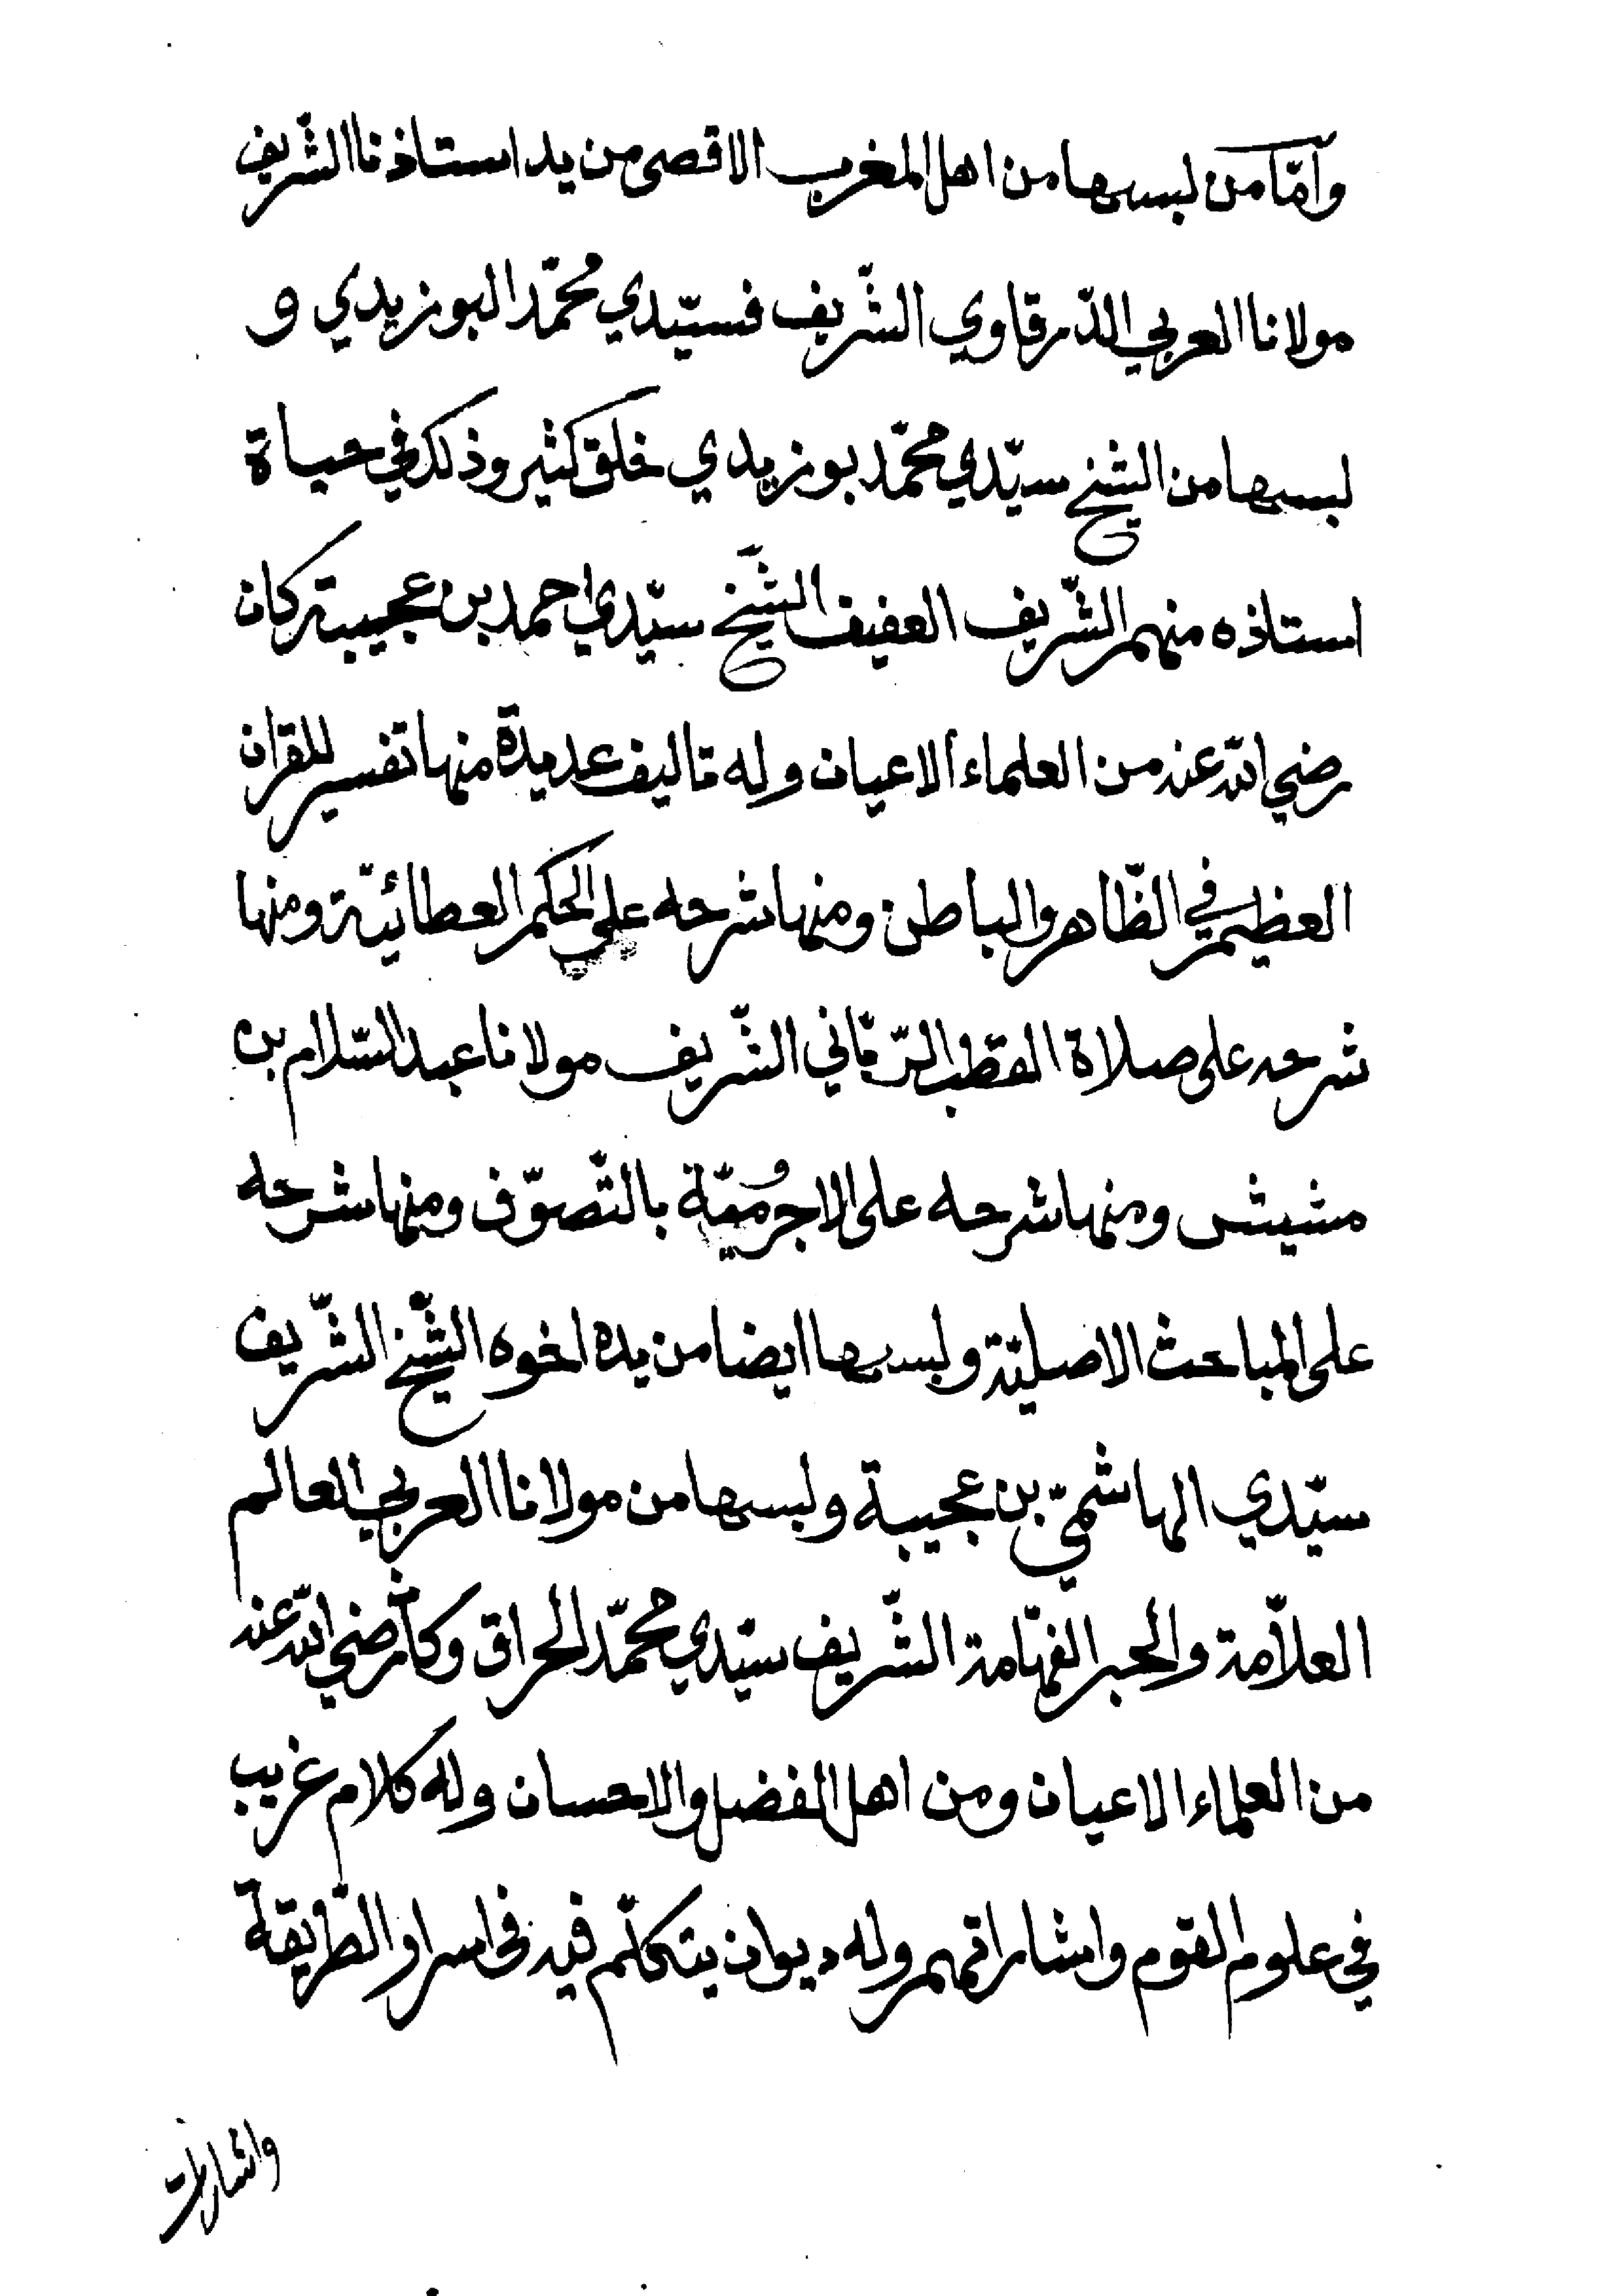 وأمّا من لبسها من اهل المغرب الاقصى من يد استاذنا الشّريف
مولانا العربي الدّرقاوي الشّريف فسيّدي محمّد البوزيدي و
لبسها من الشيخ سيّدي محمّد بوزيدي خلق كثير وذلك في حياة
استاذه منهم الشّريف العفيف الشّيخ سيّدي احمد بن عجيبة كان
رضي الله عنه من العلماء الاعيان وله تاليف عديدة منها تفسير للقران
العظيم في الظّاهر والباطن ومنها شرحه على الحكم العطائيّة ومنها
شرحه على صلاة القطب الرّبّاني الشّريف مولانا عبد السّلام بن
مشيش ومنها شرحه على الاجرُّوميّة بالتّصوّف ومنها شرحه
على المباحث الاصليّة ولبسها ايضا من يده اخوه الشّيخ الشّريف
سيّدي الهاشميّ بن عجيبة ولبسها من مولانا العربي العالم
العلاّمة والحبر الفهّامة الشّريف سيّدي محمّد الحراق وكان رضي الله عنه
من العلماء الاعيان ومن اهل الفضل والاحسان وله كلام غريب
في علوم القوم واشاراتهم وله ديوان يتكلّم فيه في اسرار الطّريقة
واشارات